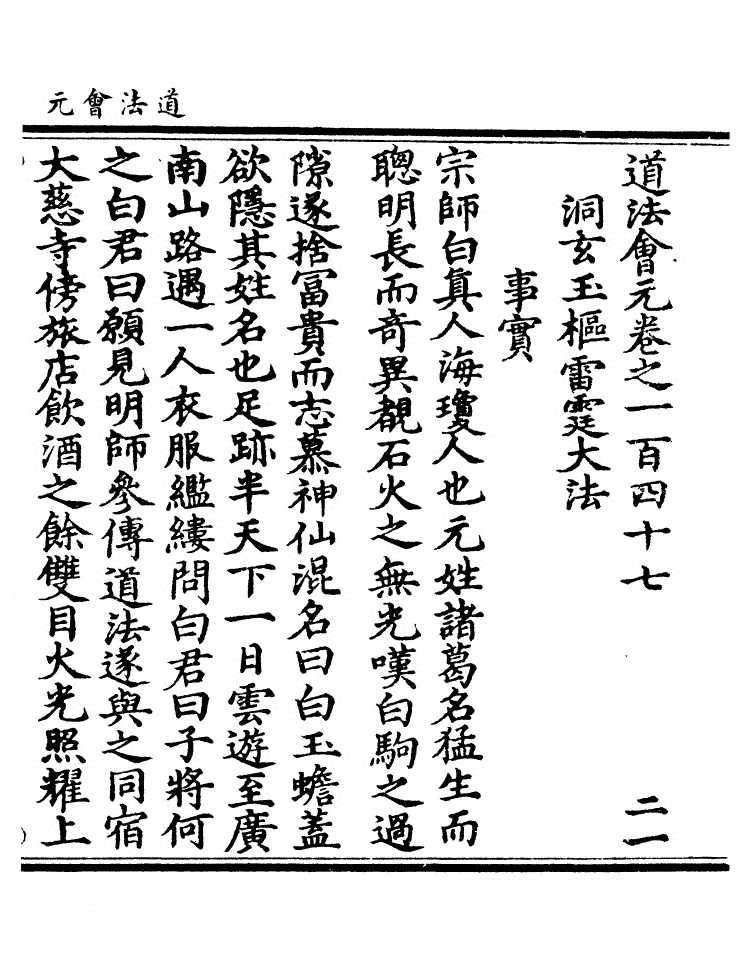 道法會元
道法會元卷之一百四十七 二一
洞玄玉樞雷霆大法
事實
宗師白真人海瓊人也元姓諸葛名猛生而
聰明長而奇異覩石火之無光嘆白駒之過
隙遂捨冨貴而志慕神仙混名曰白玉蟾蓋
欲隱其姓名也足跡半天下一日雲遊至廣
南山路遇一人衣服繿縷問白君曰子將何
之白君曰願見明師參傳道法遂與之同宿
大慈寺傍旅店飲酒之餘雙目火光照耀上